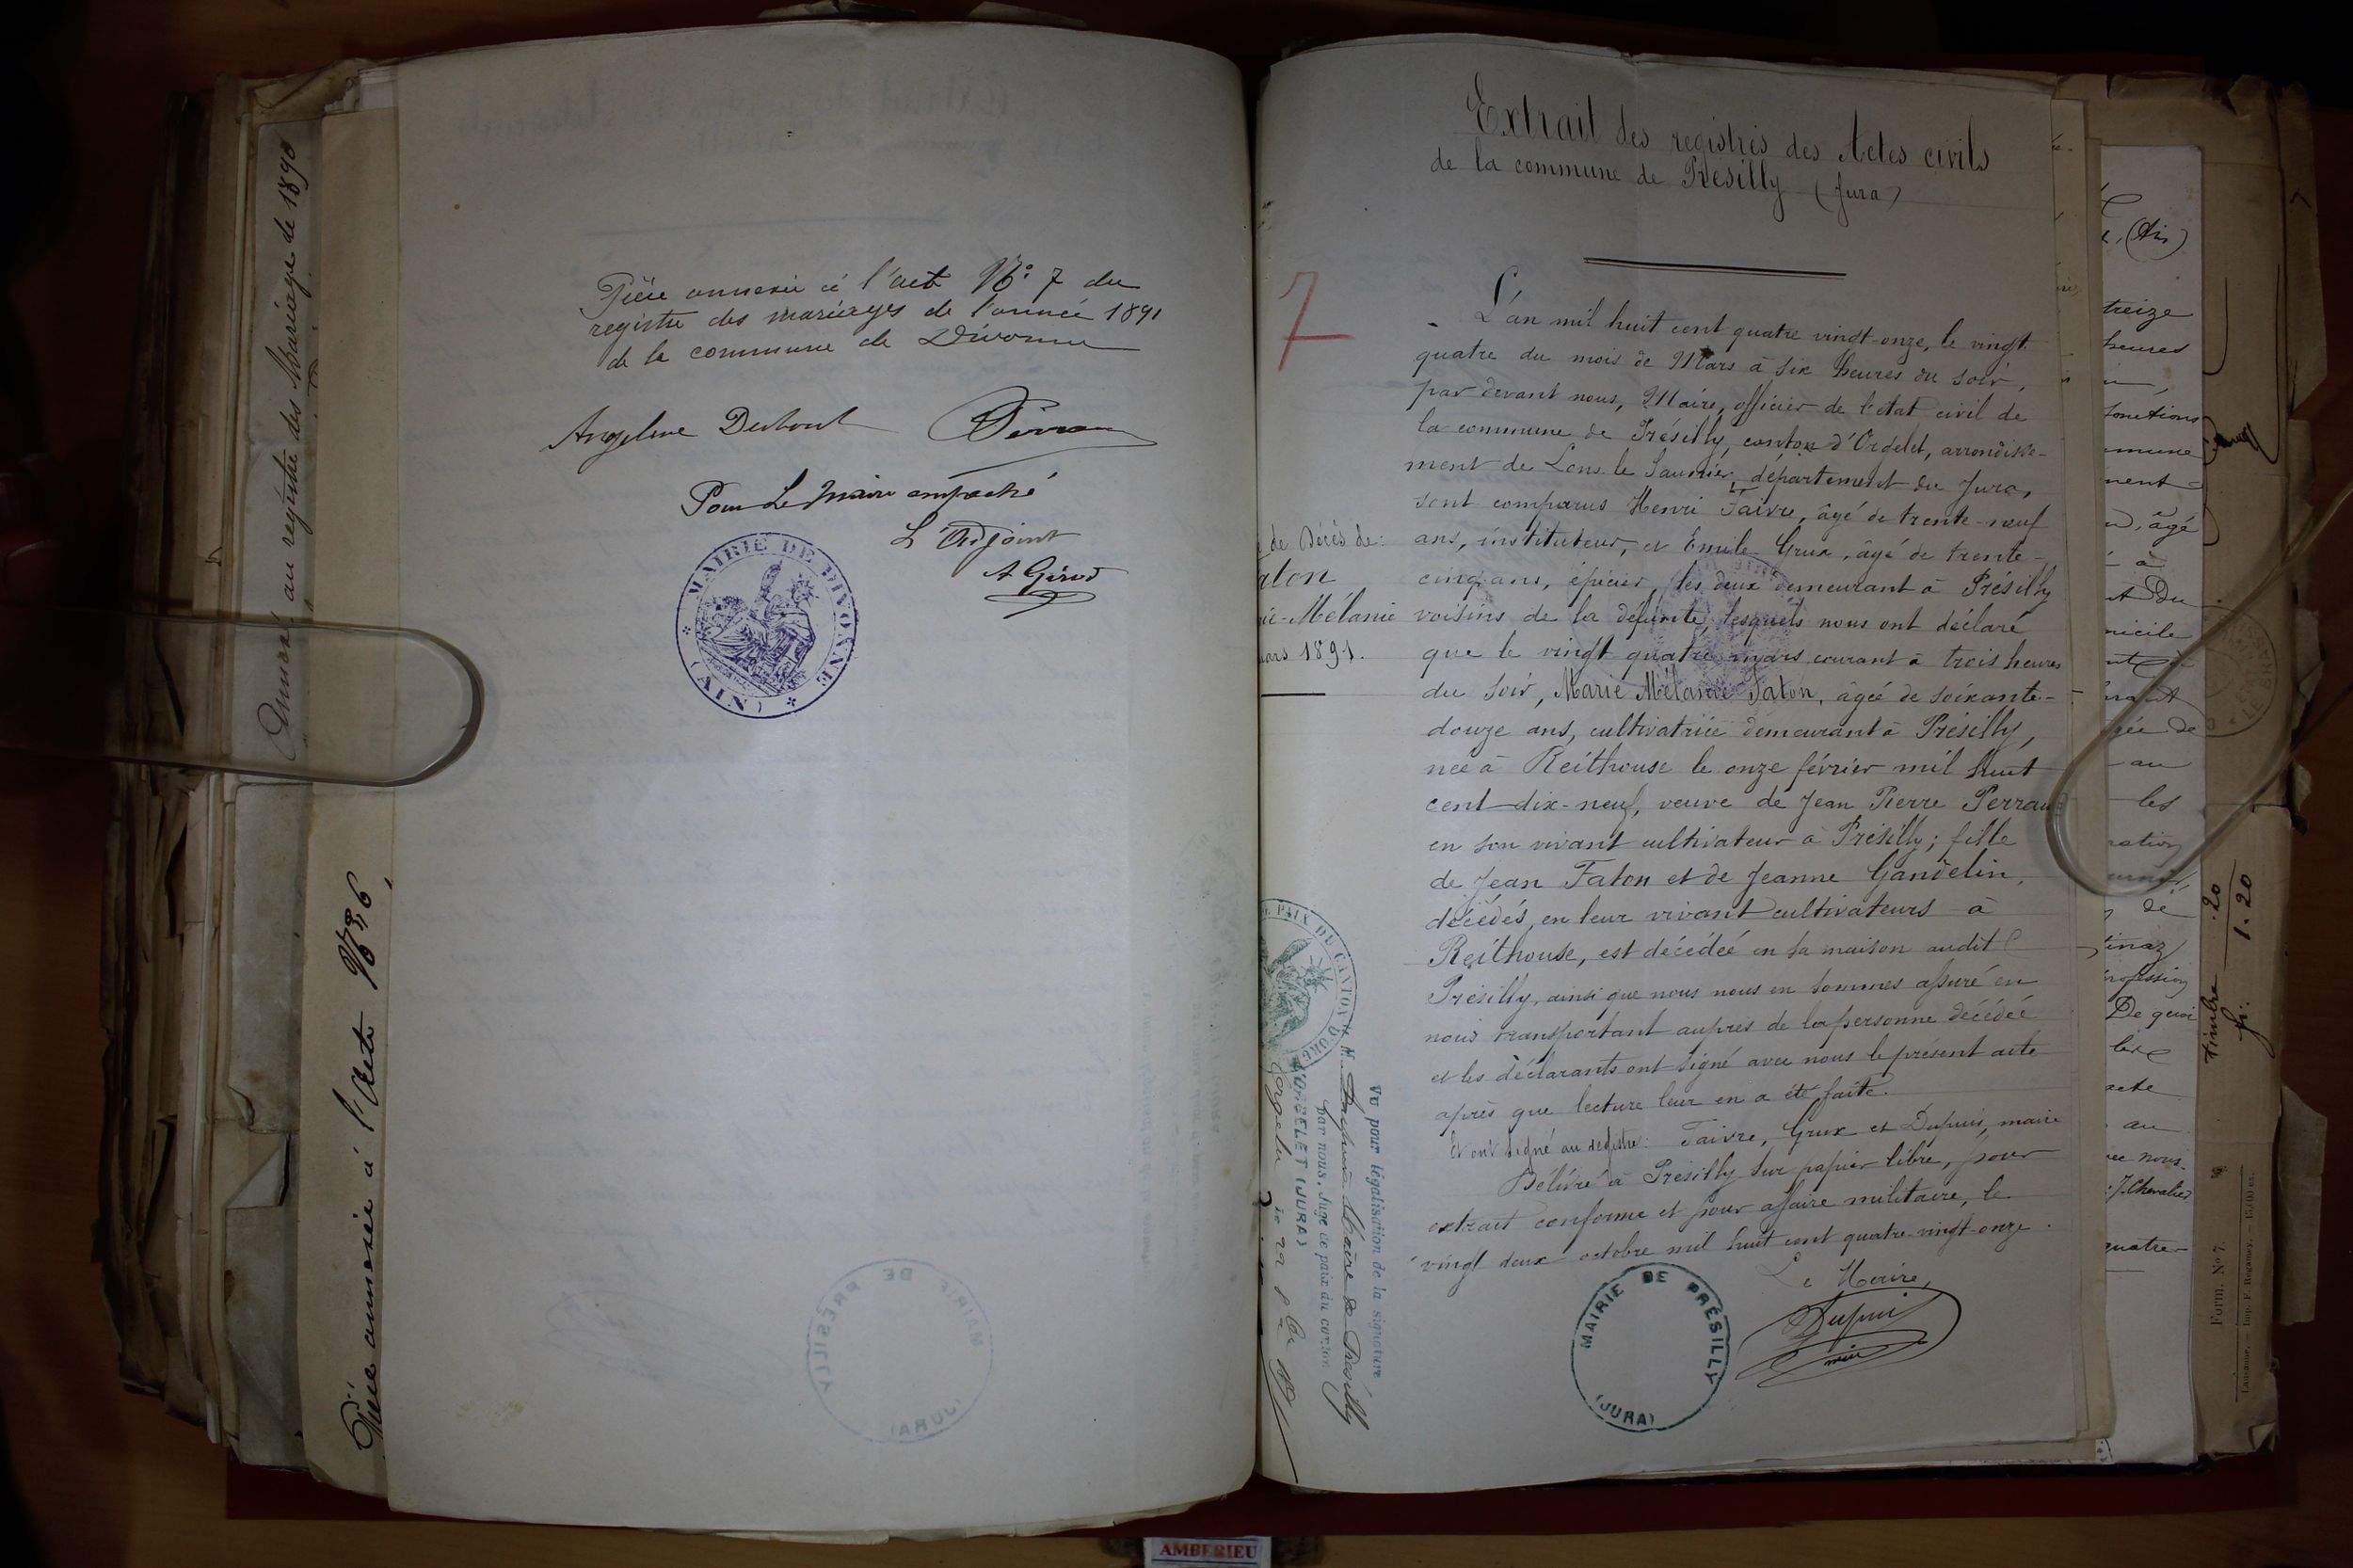 Annexé au registre des Mariages de 1890
Pièce annexée à l'Acte No 36
Pièce annexée à l'acte No 7 du
registre des mariages de l'année 1891
de la commune de Divonne
Angeline
Pour Le Maire empêché
L'Adjoint
A Girod
MAIRIE DE DIVONNE
(AIN)
Extrait des registres des Actes civils
de la commune de Présilly (Jura)
7
L'an mil huit cent quatre vingt-onze, le vingt
quatre du mois de Mars à six heures du soir,
par devant nous, Maire, officier de l'état civil de
la commune de Présilly, canton d'Orgelet, arrondisse-
ment de Lons le Saunier, département du Jura,
sont comparus Henri Faivre, âgé de trente-neuf
ans, instituteur, et Emile Grux, âgé de trente-
cinq ans, épicier, les deux demeurant à Présilly
voisins de la défunte, lesquels nous ont déclaré
que le vingt quatre mars courant à trois heures
du soir, Marie Mélanie Faton, âgée de soixante-
douze ans, cultivatrice demeurant à Présilly,
née à Reithouse le onze février mil huit
cent dix-neuf, veuve de Jean Pierre Perraud
en son vivant cultivateur à Présilly; fille
de Jean Faton et de Jeanne Gandelin,
décédés, en leur vivant cultivateurs à
Reithouse, est décédée en sa maison audit
Présilly, ainsi que nous nous en sommes assuré en
nous transportant auprès de la personne décédée
et les déclarants ont signé avec nous le présent acte
après que lecture leur en a été faite.
Et ont signé au registre: Faivre, Grux et Dupuis, maire
Délivré à Présilly sur papier libre, pour
extrait conforme et pour affaire militaire, le
vingt deux octobre mil huit cent quatre-vingt-onze.
Le Maire,
Dupuis
MAIRIE DE PRÉSILLY
(JURA)
de Décès de:
aton
ie-Mélanie
mars 1891.
PAIX DU CANTON D'ORG
Vu pour légalisation de la signature
de M. Dupuis Maire de Présilly
par nous, Juge de paix du canton
D'ORGELET (JURA)
Orgelet
(Ain)
treize
heures
fonctions
mmune
ment
âgé
à
du
micile
au
les
ration
de
tinaz
rofession
De quoi
acte
au
vec nous.
J. Chevalier
quatre-
timbre .20
fr. 1.20
Form. No 7.
Lausanne. - Imp. F. Regamey.
AMBERIEU